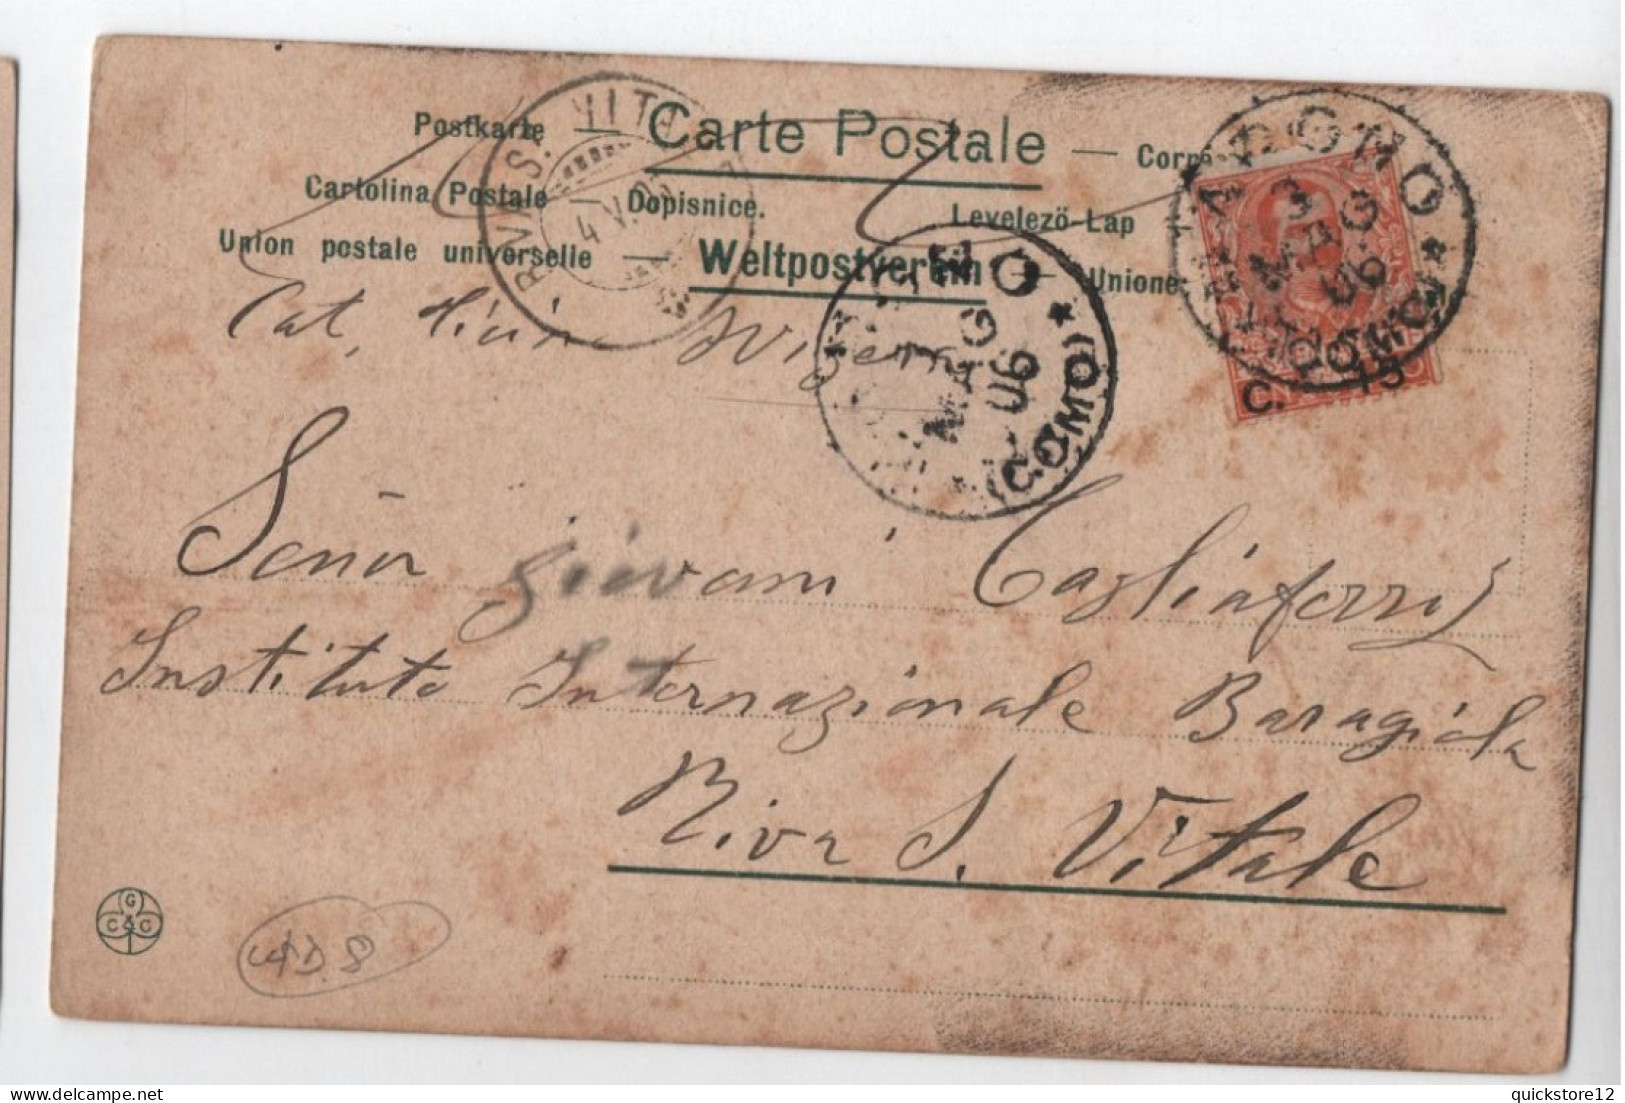 Postkarte — Carte Postale — Corre
Cartolina Postale Dopisnice. Levelezö-Lap
Union postale universelle — Weltpostverein — Unione
RIVA S. VITALE
4 V
3
MAG
06
(COMO)
3
MAG
06
(COMO)
C. 15
Señor Giovani Cagliaferri
Instituto Internazionale Baragiola
Riva S. Vitale
G
C C
quickstore12